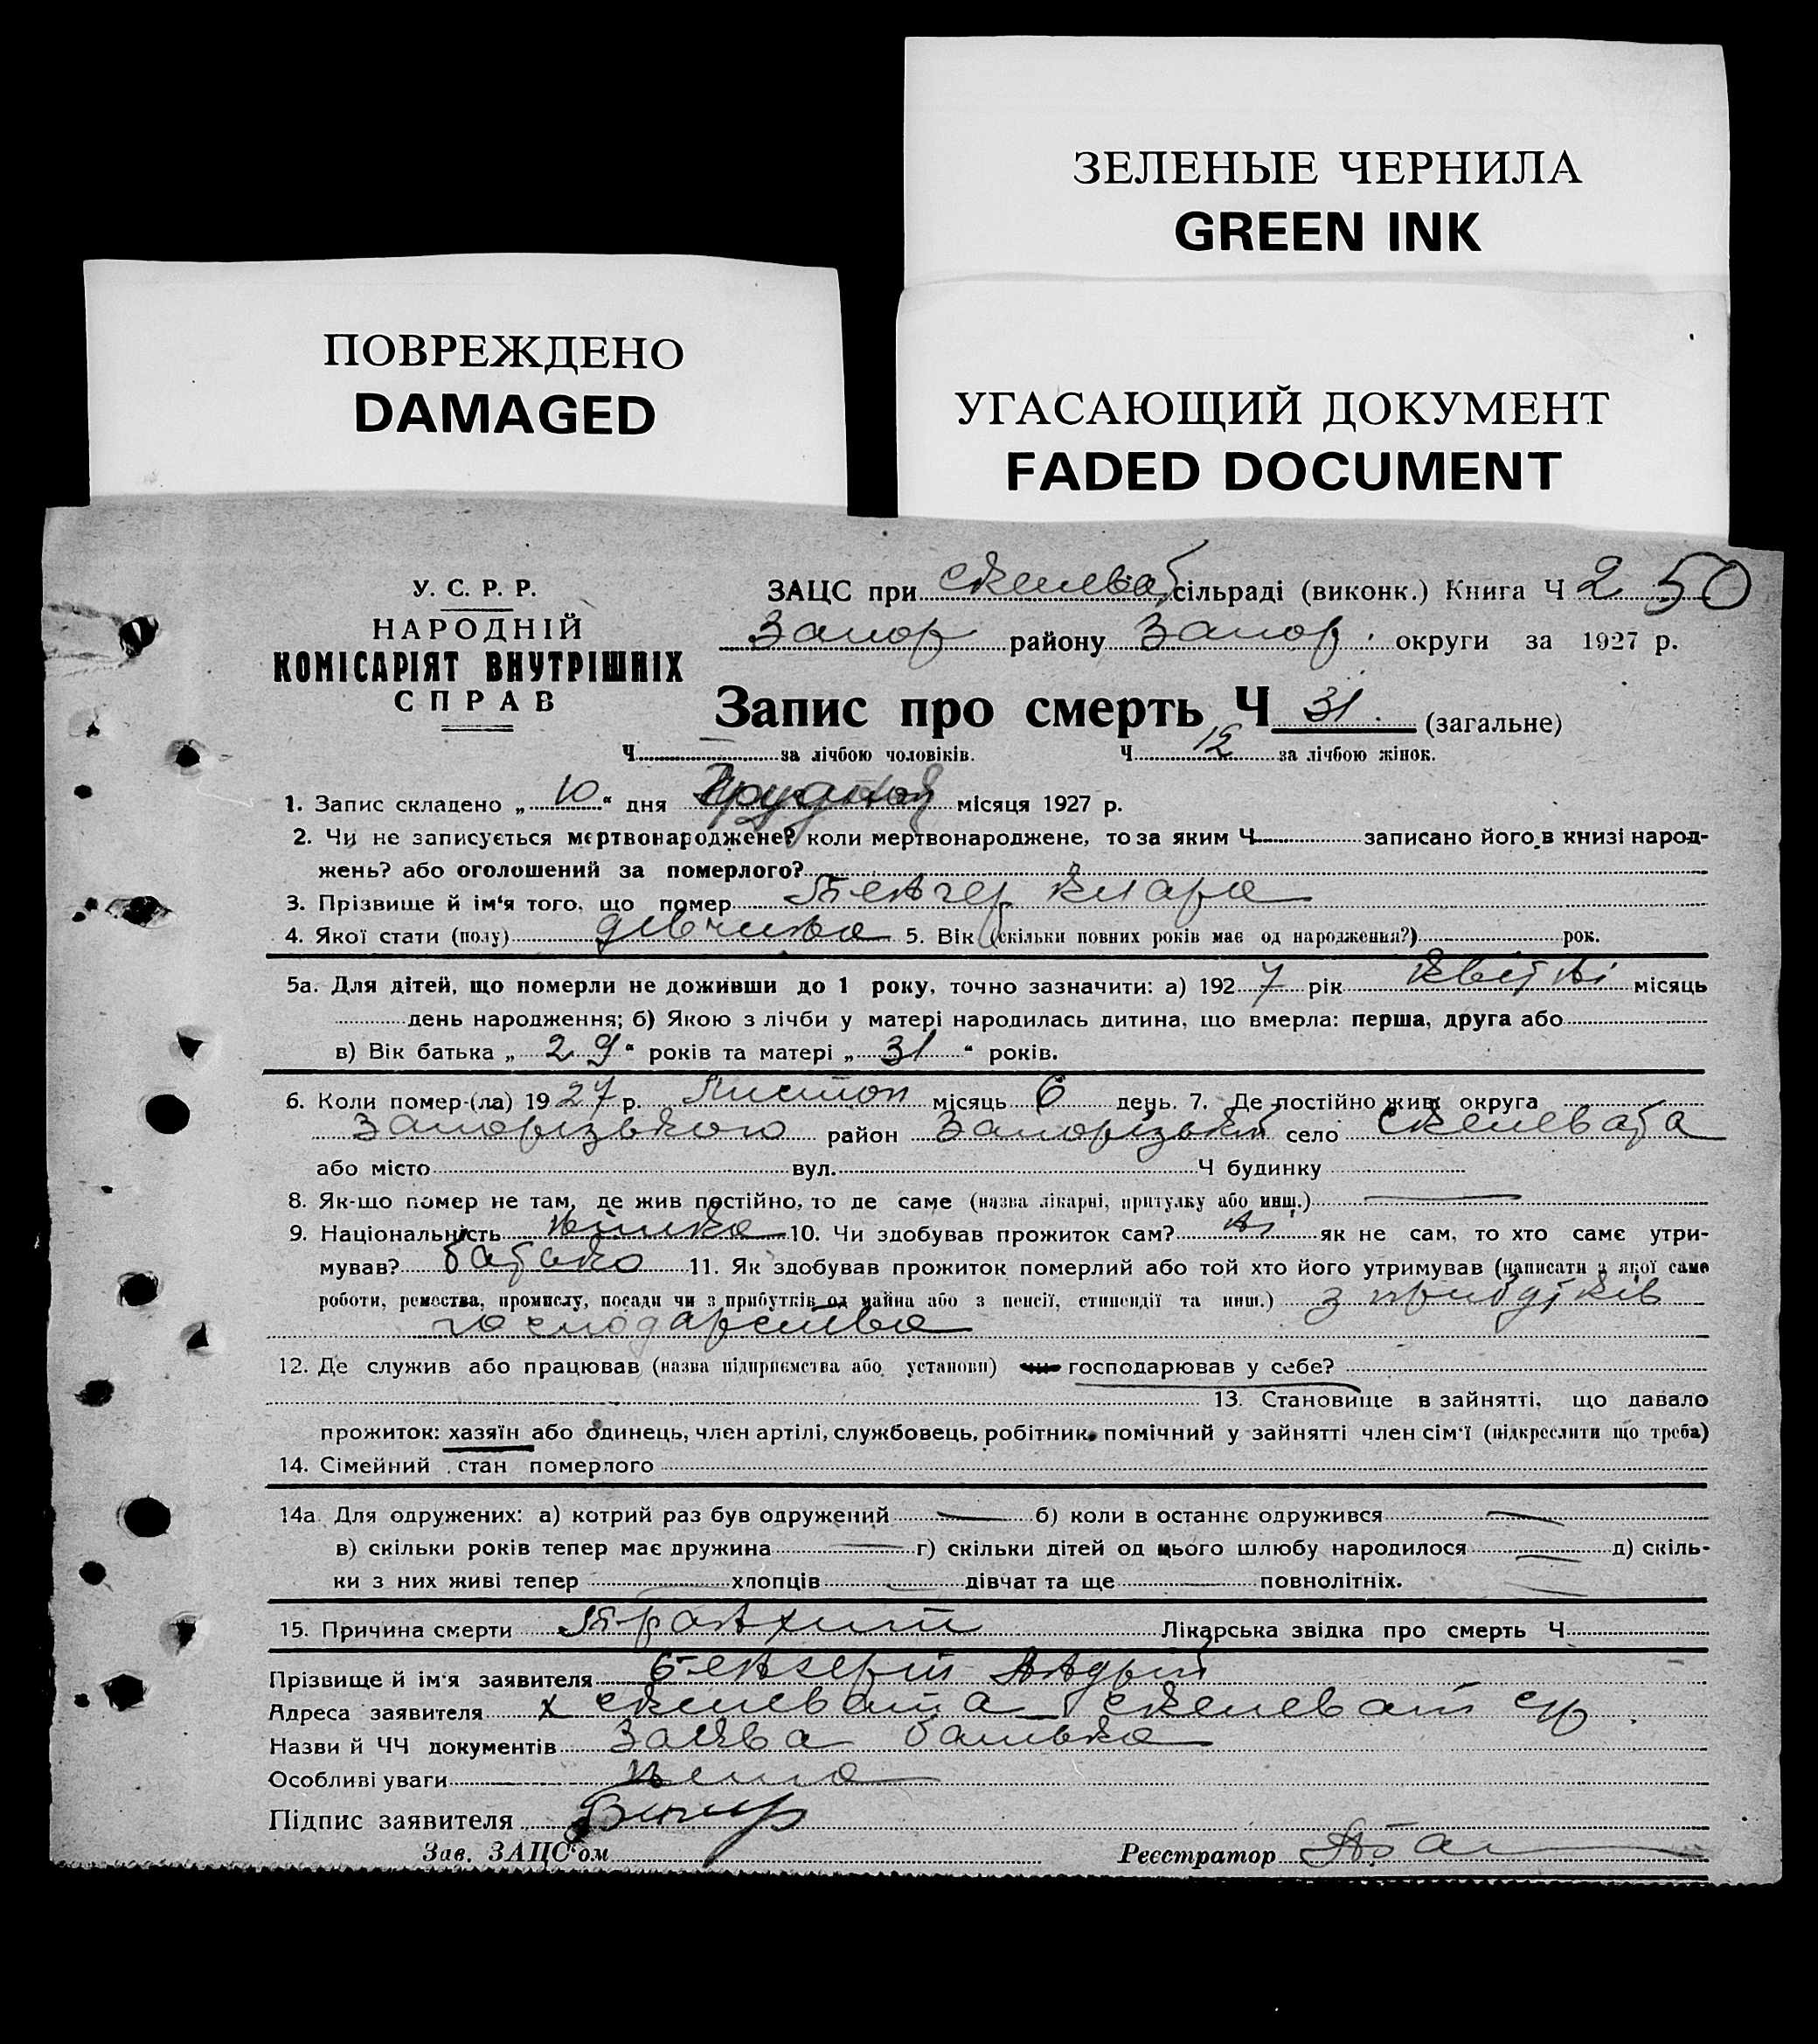 ЗЕЛЕНЫЕ ЧЕРНИЛА
GREEN INK
ПОВРЕЖДЕНО
DAMAGED
УГАСАЮЩИЙ ДОКУМЕНТ
FADED DOCUMENT
У. С. Р. Р.
НАРОДНІЙ
КОМІСАРІЯТ ВНУТРІШНІХ
СПРАВ
ЗАЦС при Скелеват сільраді (виконк.) Книга Ч 2 50
Запор району Запор. округи за 1927 р.
Запис про смерть Ч 31. (загальне)
Ч — за лічбою чоловіків. Ч 12 за лічбою жінок.
1. Запис складено „ 10 “ дня Грудня місяця 1927 р.
2. Чи не записується мертвонароджене? коли мертвонароджене, то за яким Ч записано його в книзі народ-
жень? або оголошений за померлого?
3. Прізвище й ім'я того, що помер Клара
4. Якої стати (полу) дівчинка 5. Вік (скільки повних років має од народження?) рок.
5а. Для дітей, що померли не доживши до 1 року, точно зазначити: а) 1927 рік квітні місяць
день народження; б) Якою з лічби у матері народилась дитина, що вмерла: перша, друга або
в) Вік батька „ 29 “ років та матері „ 31 “ років.
6. Коли помер-(ла) 1927 р. Листоп місяць 6 день. 7. Де постійно жив: округа
Запорізького район Запорізький село Скелевата
або місто вул. Ч будинку
8. Як-що помер не там, де жив постійно, то де саме (назва лікарні, притулку або инш.) —
9. Національність німка 10. Чи здобував прожиток сам? ні як не сам, то хто саме утри-
мував? батько 11. Як здобував прожиток померлий або той хто його утримував (написати з якої саме
роботи, ремества, промислу, посади чи з прибутків од майна або з пенсії, стипендії та инш.) з прибутків
господарства
12. Де служив або працював (назва підприємства або установи) чи господарював у себе?
13. Становище в зайнятті, що давало
прожиток: хазяїн або одинець, член артілі, службовець, робітник, помічний у зайнятті член сім'ї (підкреслити що треба)
14. Сімейний стан померлого
14а. Для одружених: а) котрий раз був одружений — б) коли в останнє одружився —
в) скільки років тепер має дружина — г) скільки дітей од цього шлюбу народилося — д) скіль-
ки з них живі тепер хлопців — дівчат та ще — повнолітніх.
15. Причина смерти Лікарська звідка про смерть Ч
Прізвище й ім'я заявителя Андрій
Адреса заявителя х Скелевата Скелеват с/р
Назви й ЧЧ документів Заява батька
Особливі уваги нема
Підпис заявителя
Зав. ЗАЦС'ом
Реєстратор